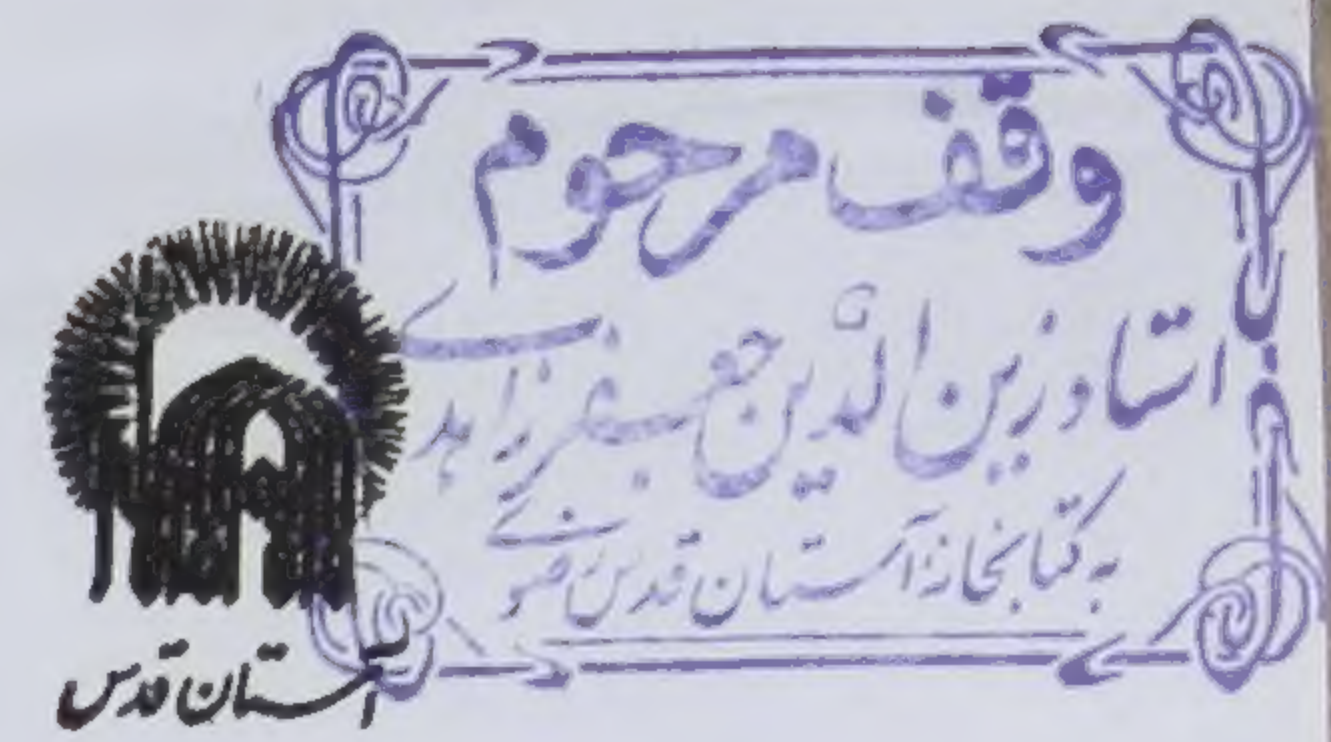 وقف مرحوم
استاد زین الدین جعفر زاهدی
به کتابخانهٔ آستان قدس رضوی
آستان قدس